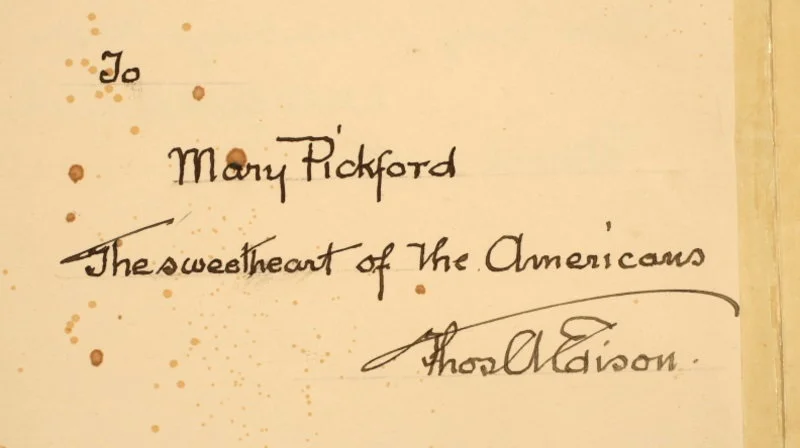 To
Mary Pickford
The sweetheart of the Americans
Thos A Edison.